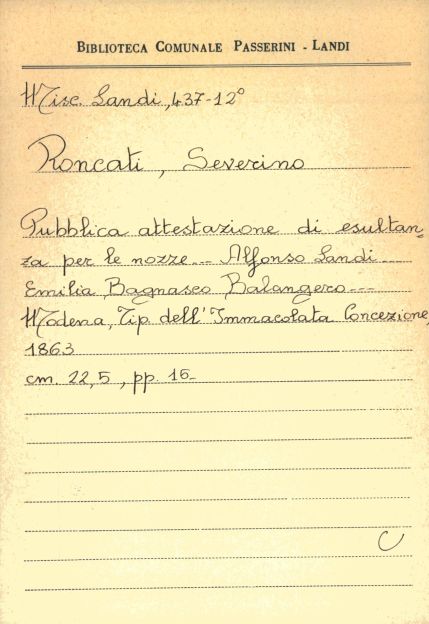 BIBLIOTECA COMUNALE PASSERINI - LANDI
Misc. Landi, 437-12°
Roncati, Severino
Pubblica attestazione di esultan-
za per le nozze... Alfonso Landi...
Emilia Bagnasco Balangero...
Modena, Tip. dell'Immacolata Concezione,
1863
cm. 22,5, pp. 16
C